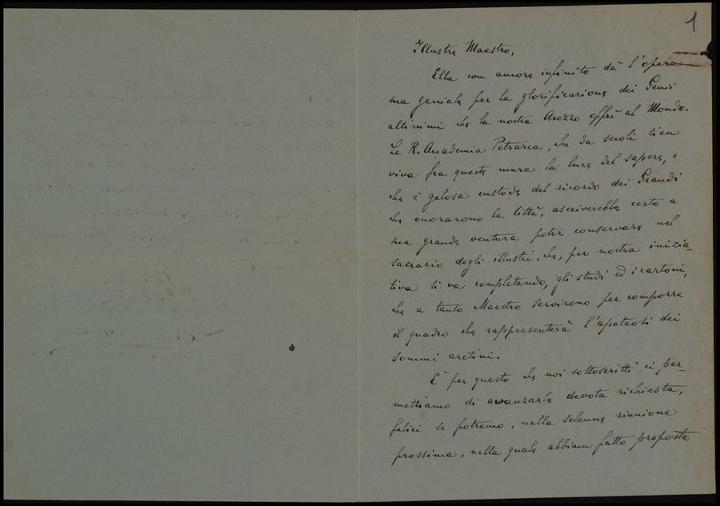 1
Illustre Maestro,
Ella con amore infinito dà l'opera
sua geniale per la glorificazione dei Geni
altissimi che la nostra Arezzo offrì al Mondo.
La R. Accademia Petrarca, che da secoli tien
viva fra queste mura la luce del sapere, e
che è gelosa custode del ricordo dei Grandi
che onorarono la Città, ascriverebbe certo a
sua grande ventura poter conservare nel
sacrario degli illustri, che, per nostra inizia-
tiva si va completando, gli studi ed i cartoni,
che a tanto Maestro servirono per comporre
il quadro che rappresenterà l'apoteosi dei
sommi aretini.
È per questo che noi sottoscritti ci per-
mettiamo di avanzarle devota richiesta,
felici se potremo, nella solenne riunione
prossima, nella quale abbiam fatto proposta